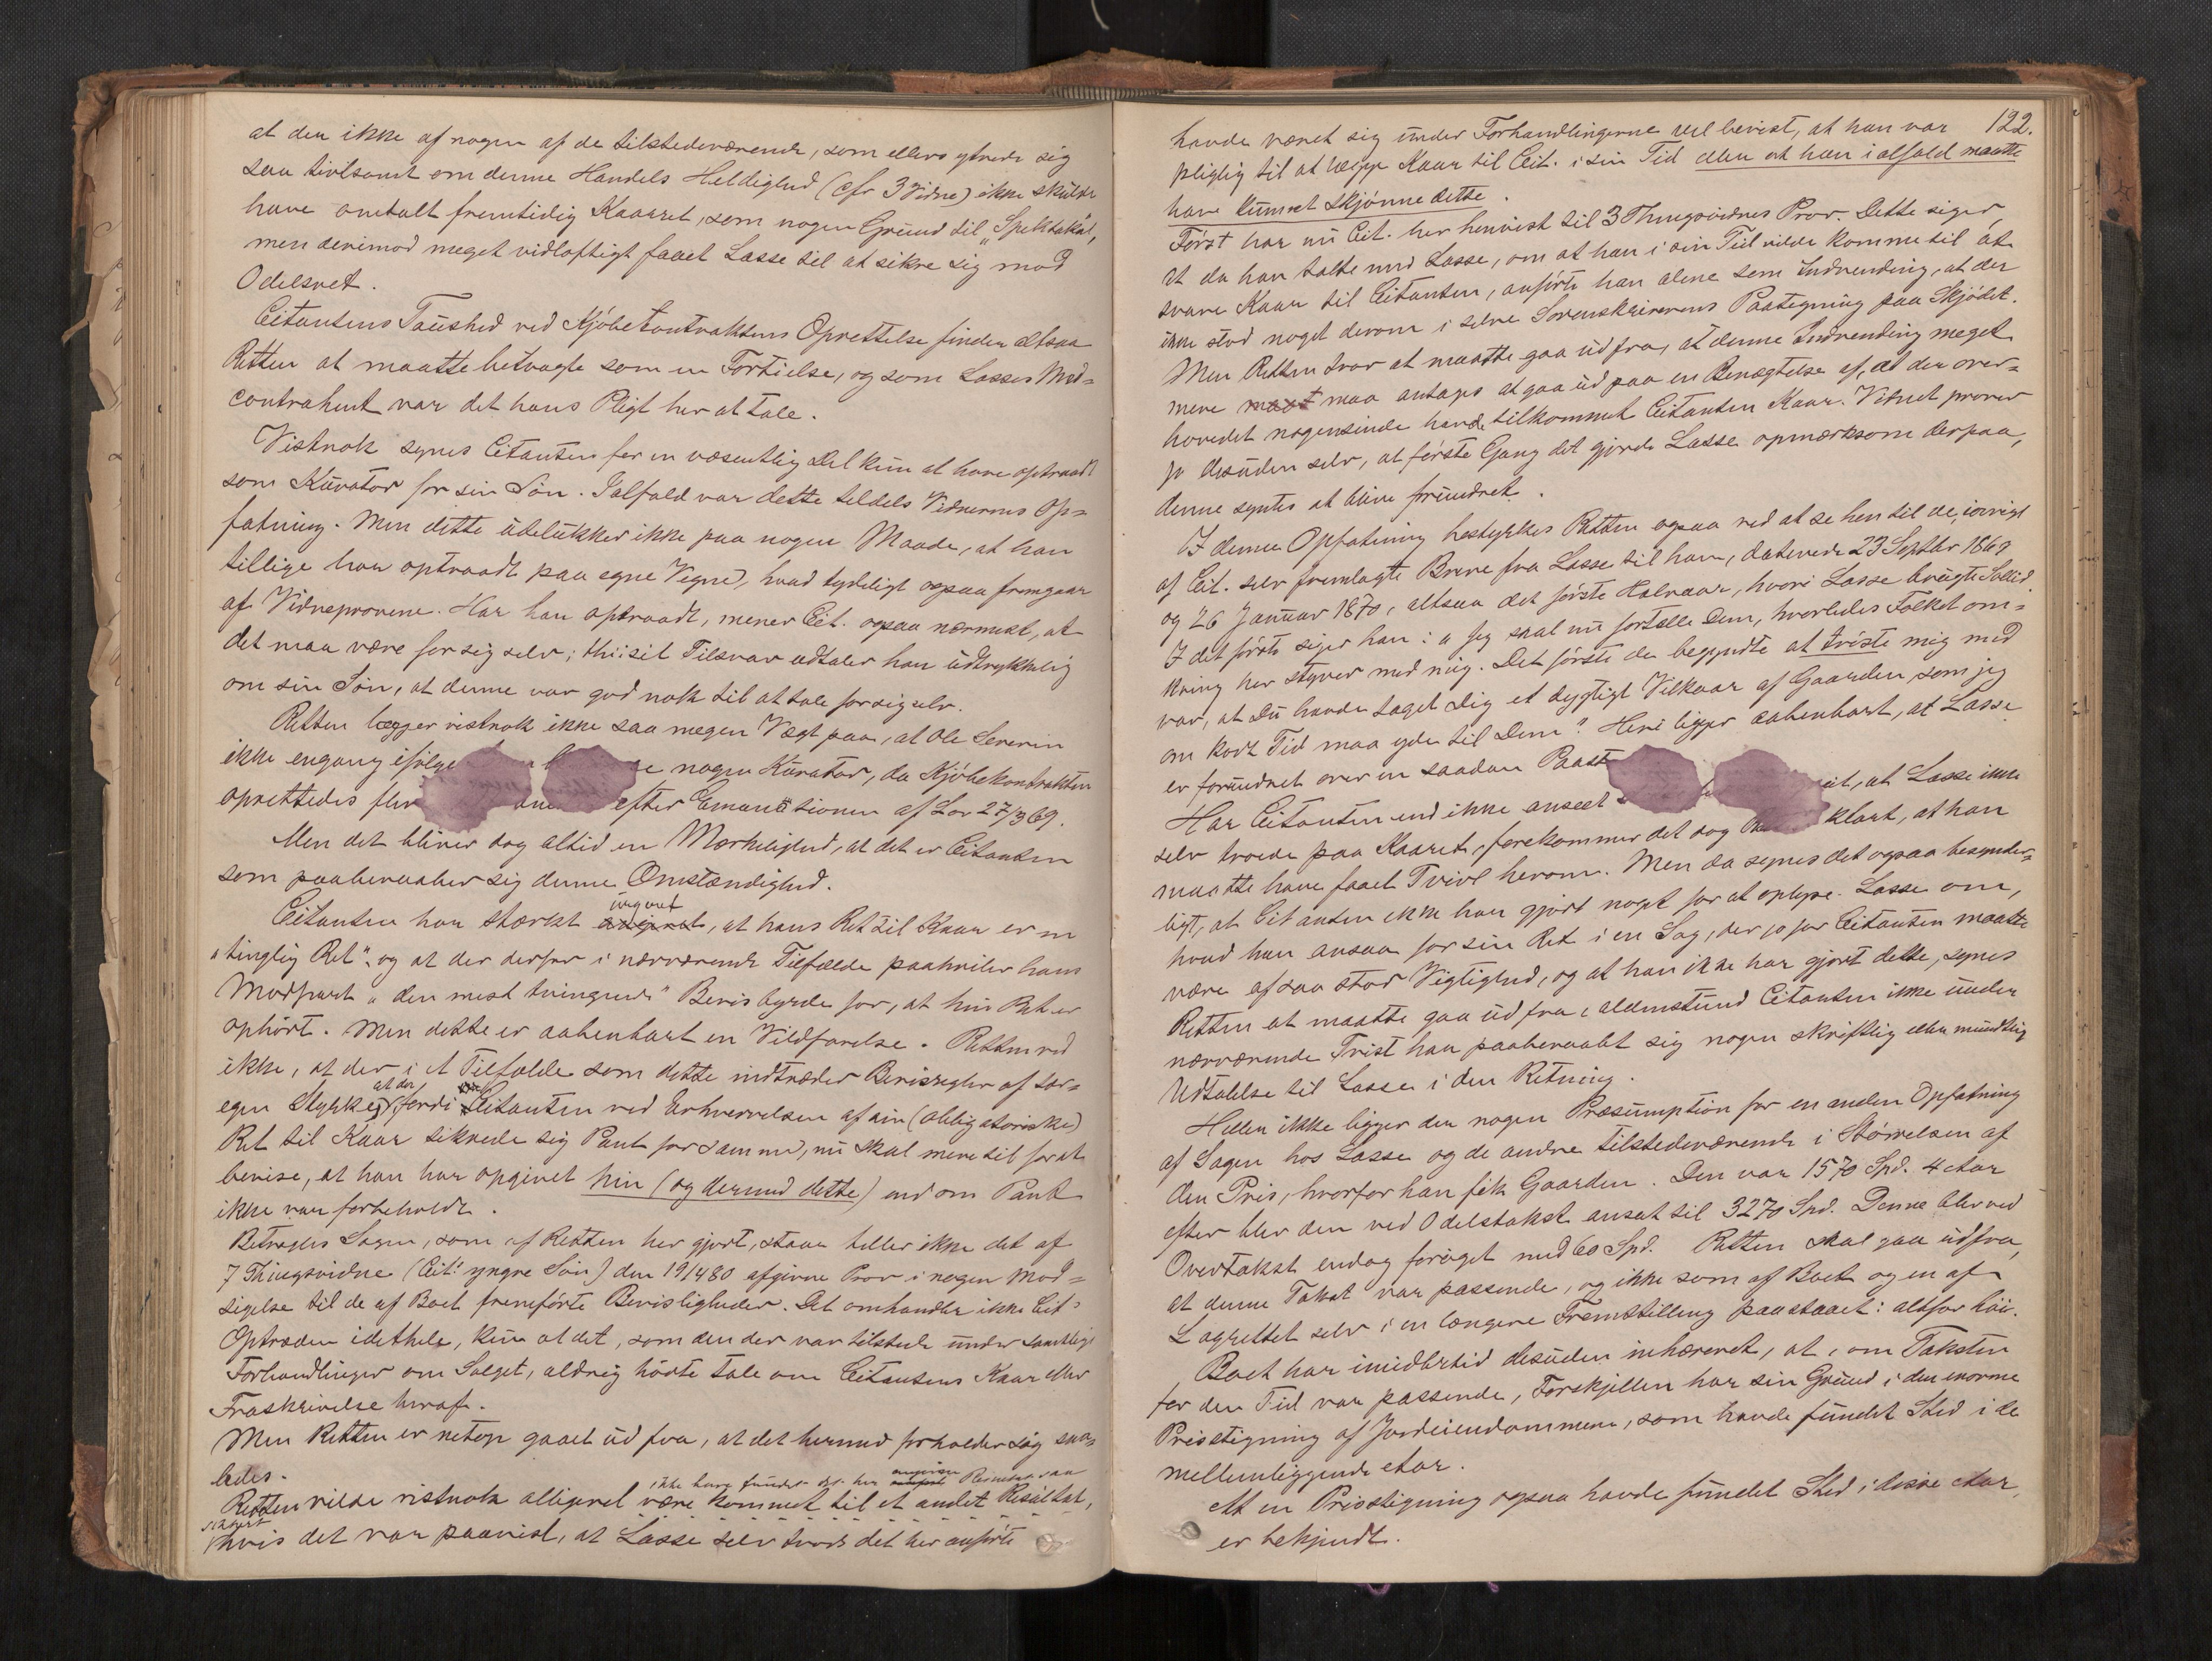 at den ikke af nogen af de tilstedeværende, som ellers ytrede sig
saa tvilsomt om denne Handels Heldighed (cfr 3 Vidne) ikke skulde
have omtalt fremtidig Kaaret, som nogen Grund til "Spektakel",
men derimod meget vidløftigt faaet Lasse til at sikre sig mod
Odelsret.
Citantens Taushed ved Kjøbekontraktens Oprettelse finder altsaa
Retten at maatte betragte som en Fortielse, og som Lasses Med=
contrahent var det hans Pligt her at tale.
Vistnok synes Citanten for en væsentlig Del kun at have optraadt
som Kurator for sin Søn. Ialfald var dette tildels Vidnernes Op=
fatning. Men dette udelukker ikke paa nogen Maade, at han
tillige har optraadt paa egne Vegne, hvad tydeligt ogsaa fremgaar
af Vidneprovene. Har han optraadt, mener Cit. ogsaa nærmest, at
det maa være for sig selv; thi i sit Tilsvar udtaler han udtrykkelig
om sin Søn, at denne var god nok til at tale for sig selv.
Retten lægger vistnok ikke saa megen Vægt paa, at Ole Severin
ikke engang ifølge nogen Kurator, da Kjøbekontrakten
oprettedes efter Emanationen af Lov 27/3 69.
Men det bliver dog altid en Mærkelighed, at det er Citanten
som paaberaaber sig denne Omstændighed.
Citanten har stærkt urgeret, at hans Ret til Kaar er en
"tinglig Ret", og at der derfor i nærværende Tilfælde paahviler hans
Modpart "den mest tvingende" Bevisbyrde for, at hin Ret er
ophørt. Men dette er aabenbart en Vildfarelse. Retten ved
ikke, at der i et Tilfælde som dette indtræder Bevisregler af sær=
egen Stykke, at der, fordi Citanten ved Erhvervelsen af sin (obligatoriske)
Ret til Kaar sikrede sig Pant for samme, nu skal mere til for at
bevise, at han har opgivet hin (og dermed dette) end om Pant
ikke var forbeholdt.
Betragtes Sagen, som af Retten her gjort, staar heller ikke det af
7 Thingsvidne (Cit.s yngre Søn) den 19/4 80 afgivne Prov i nogen Mod=
sigelse til de af Boet fremførte Bevisligheder. Det omhandler ikke Cit.s
Optræden idethele, kun at det, som den der var tilstede under samtlige
Forhandlinger om Salget, aldrig hørte tale om Citantens Kaar eller
Fraskrivelse heraf.
Men Retten er netop gaaet ud fra, at det hermed forholder sig saa=
ledes.
ikke have fundet det her angivne Resultat saa
Retten vilde vistnok alligevel være kommet til et andet Resultat,
sikkert
hvis det var paavist, at Lasse selv trods det her anførte
122.
havde været sig under Forhandlingerne vel bevist, at han var
pligtig til at lægge Kaar til Cit. i sin Tid eller at han i alfald maatte
have kunnet skjønne dette.
Først har nu Cit. her henvist til 3 Thingsvidnes Prov. Dette siger,
at da han talte med Lasse, om at han i sin Tid vilde komme til at
svare Kaar til Citanten, anførte han alene som Indvending, at der
ikke stod noget derom i selve Sorenskriverens Paategning paa Skjødet.
Men Retten tror at maatte gaa ud fra, at denne Indvending meget
mere maa antages at gaa ud paa en Benægtelse af, at der over=
hovedet nogensinde havde tilkommet Citanten Kaar. Vidnet prover
jo desuden selv, at første Gang det gjorde Lasse opmærksom derpaa,
denne syntes at blive forundret.
I denne Opfatning bestyrkes Retten ogsaa ved at se hen til de, iøvrigt
af Cit. selv fremlagte Breve fra Lasse til ham, daterede 23 Septbr 1869
og 26 Januar 1870, altsaa det første Halvaar, hvori Lasse brugte Sollid.
I det første siger han: "Jeg skal nu fortælle Dem, hvorledes Folket om=
kring her styrer med mig. Det første de begyndte at trøste mig med
var, at Du havde taget Dig et dygtigt Vilkaar af Gaarden, som jeg
om kort Tid maa yde til Dem". Heri ligger aabenbart, at Lasse
er forundret over en saadan Paast
Har Citanten end ikke anseet at Lasse ikke
selv troede paa Kaaret, forekommer det dog klart, at han
maatte have faaet Tvivl herom. Men da synes det ogsaa besynder=
ligt, at Citanten ikke har gjort noget for at oplyse Lasse om,
hvad han ansaa for sin Ret i en Sag, der jo for Citanten maatte
være af saa stor Vigtighed, og at han ikke har gjort dette, synes
Retten at maatte gaa ud fra, aldenstund Citanten ikke under
nærværende Tvist har paaberaabt sig nogen skriftlig eller mundtlig
Udtalelse til Lasse i den Retning.
Heller ikke ligger der nogen Præsumption for en anden Opfatning
af Sagen hos Lasse og de andre tilstedeværende i Størrelsen af
den Pris, hvorfor han fik Gaarden. Den var 1570 Spd. 4 Aar
efter blev den ved Odelstakst ansat til 3270 Spd. Denne blev ved
Overtakst endog forøget med 60 Spd. Retten skal gaa ud fra,
at denne Takst var passende, og ikke som af Boet og en af
Lagrettet selv i en længere Fremstilling paastaaet: altfor høi.
Boet har imidlertid desuden inhæreret, at, om Taksten
for den Tid var passende, Forskjellen har sin Grund i den enorme
Prisstigning af Jordeiendommene, som havde fundet Sted i de
mellemliggende Aar.
At en Prisstigning ogsaa havde fundet Sted i disse Aar,
er bekjendt.